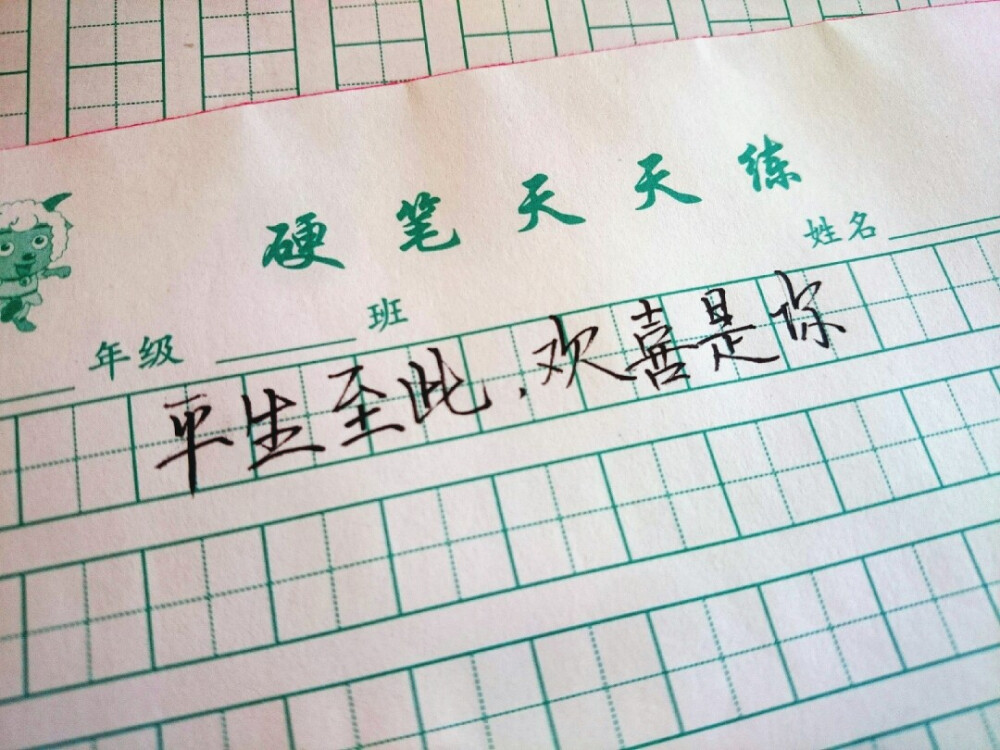 硬笔天天练
年级 班 姓名
平生至此,欢喜是你